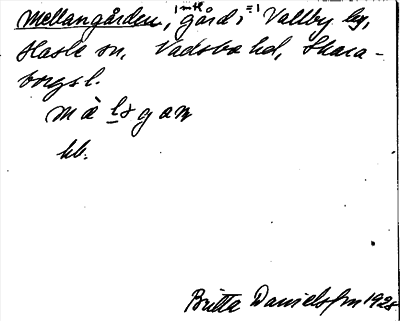 Mellangården, gård i Vallby by,
Hasle sn, Vadsbo hd, Skara-
borgs l.
mè lsgan
hb.
Britta Danielson 1928